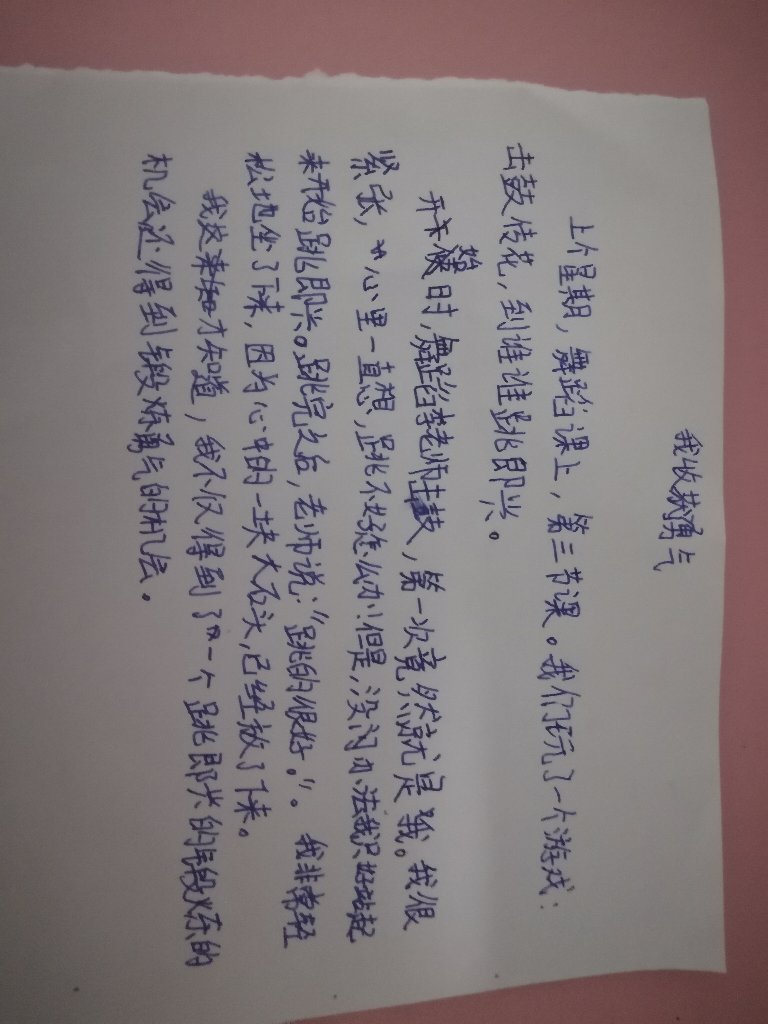 我收获勇气
上个星期，舞蹈课上，第三节课。我们玩了一个游戏：
击鼓传花，到谁谁跳即兴。
开始时，舞蹈李老师击鼓，第一次竟然就是我。我很
紧张，心里一直想，跳不好怎么办！但是，没办法我只好站起
来开始跳即兴。跳完之后，老师说：“跳的很好。”。我非常轻
松地坐了下来，因为心中的一块大石头，已经放了下来。
我这才知道，我不仅得到了一个跳即兴的锻炼的
机会还得到锻炼勇气的机会。